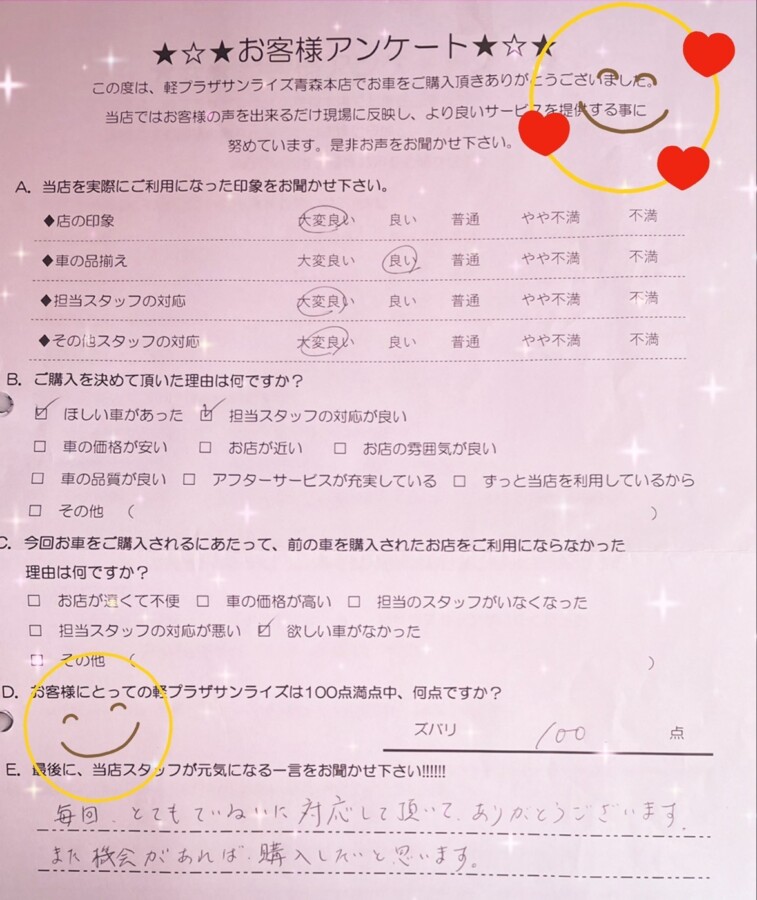 ★☆★お客様アンケート★☆★
この度は、軽プラザサンライズ青森本店でお車をご購入頂きありがとうございました。
当店ではお客様の声を出来るだけ現場に反映し、より良いサービスを提供する事に
努めています。是非お声をお聞かせ下さい。
A. 当店を実際にご利用になった印象をお聞かせ下さい。
◆店の印象 大変良い 良い 普通 やや不満 不満
◆車の品揃え 大変良い 良い 普通 やや不満 不満
◆担当スタッフの対応 大変良い 良い 普通 やや不満 不満
◆その他スタッフの対応 大変良い 良い 普通 やや不満 不満
B. ご購入を決めて頂いた理由は何ですか？
☑ ほしい車があった ☑ 担当スタッフの対応が良い
□ 車の価格が安い □ お店が近い □ お店の雰囲気が良い
□ 車の品質が良い □ アフターサービスが充実している □ ずっと当店を利用しているから
□ その他 （ ）
C. 今回お車をご購入されるにあたって、前の車を購入されたお店をご利用にならなかった
理由は何ですか？
□ お店が遠くて不便 □ 車の価格が高い □ 担当のスタッフがいなくなった
□ 担当スタッフの対応が悪い ☑ 欲しい車がなかった
□ その他 （ ）
D. お客様にとっての軽プラザサンライズは100点満点中、何点ですか？
ズバリ 100 点
E. 最後に、当店スタッフが元気になる一言をお聞かせ下さい!!!!!!
毎回、とてもていねいに対応して頂いて、ありがとうございます。
また機会があれば、購入したいと思います。